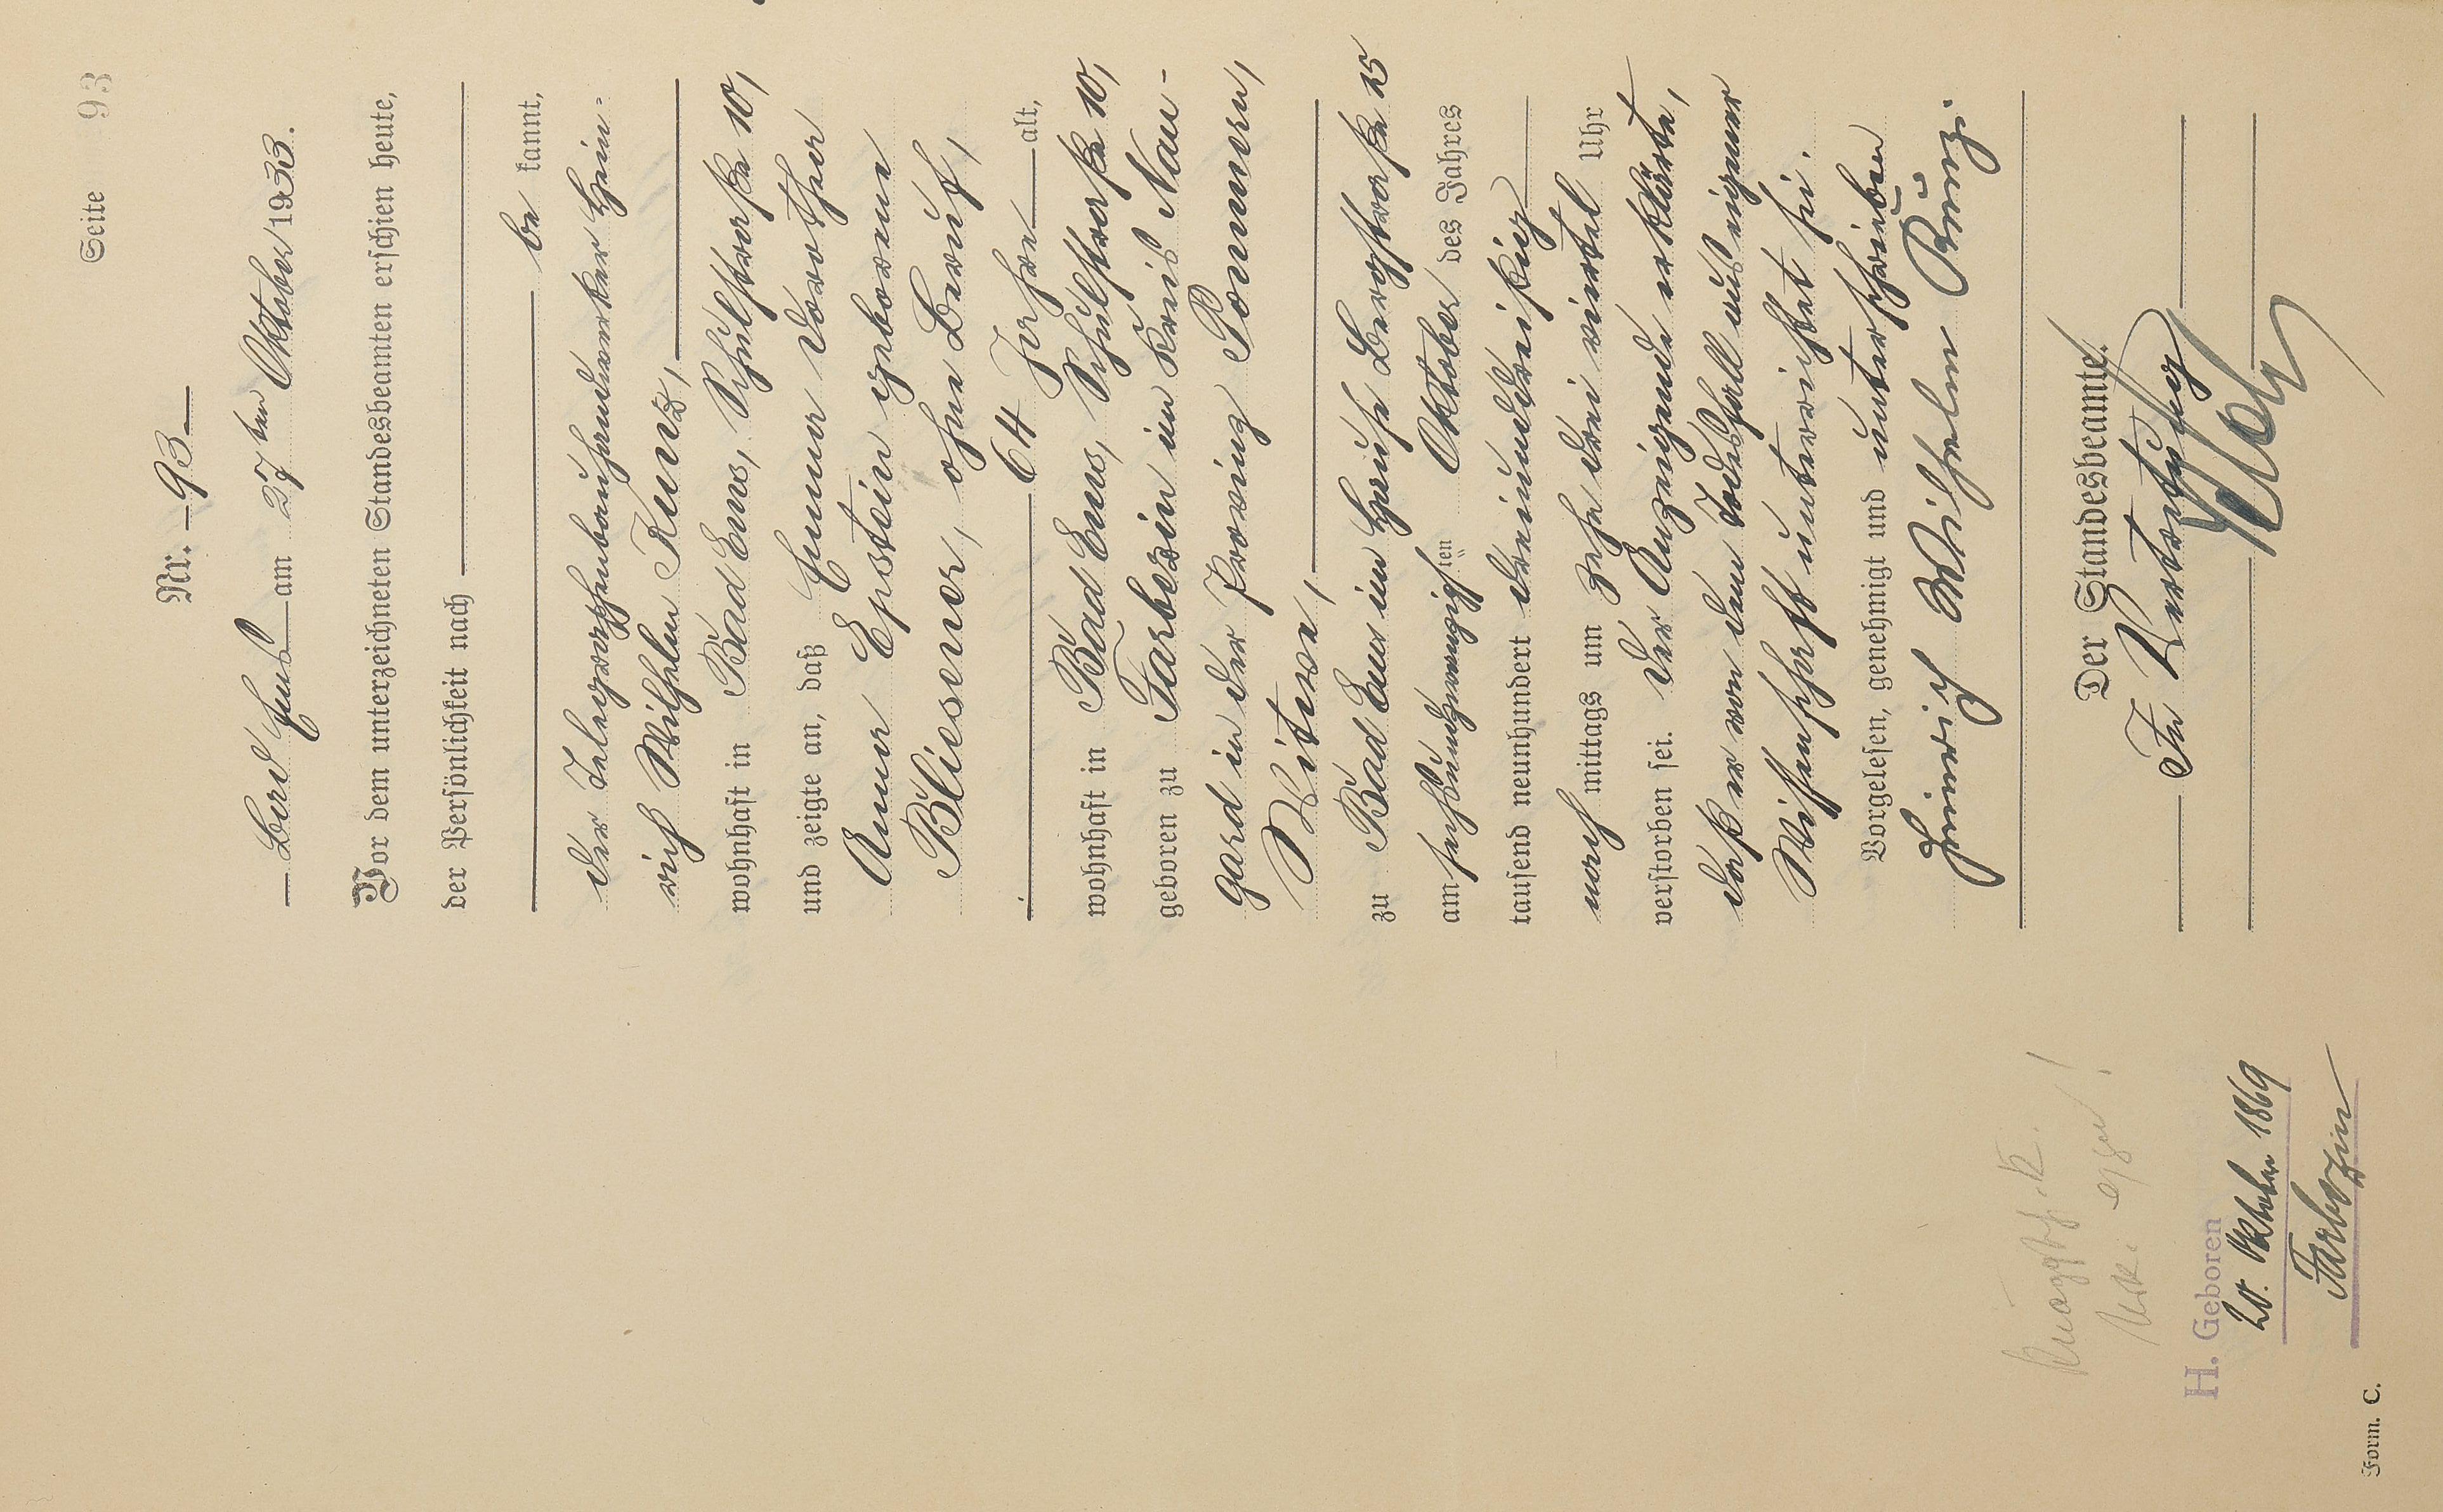 Seite 93
Nr. 93
Bad Ems am 27ten Oktober 1933.
Vor dem unterzeichneten Standesbeamten erschien heute,
der Persönlichkeit nach
be kannt,
der Telegraphenbauhandwerker Hein-
rich Wilhelm Kunz,
wohnhaft in Bad Ems, Schulstraße 10,
und zeigte an, daß Emma Dorothea
Anna Epstein geborene
Bliesener, ohne Beruf,
64 Jahre alt,
wohnhaft in Bad Ems, Schulstraße 10,
geboren zu Farbezin im Kreis Nau-
gard in der Provinz Pommern,
Witwe,
zu Bad Ems im Hause Bergstraße 25
am sechsundzwanzigsten Oktober des Jahres
tausend neunhundert dreiunddreißig
nach mittags um zehn drei viertel Uhr
verstorben sei. Der Anzeigende erklärte,
daß er von dem Todesfall aus eigener
Wissenschaft unterrichtet sei.
Vorgelesen, genehmigt und unterschrieben
Heinrich Wilhelm Kunz.
Der Standesbeamte.
In Vertretung
H. Geboren
20. Oktober 1869
Farbezin
Form. C.